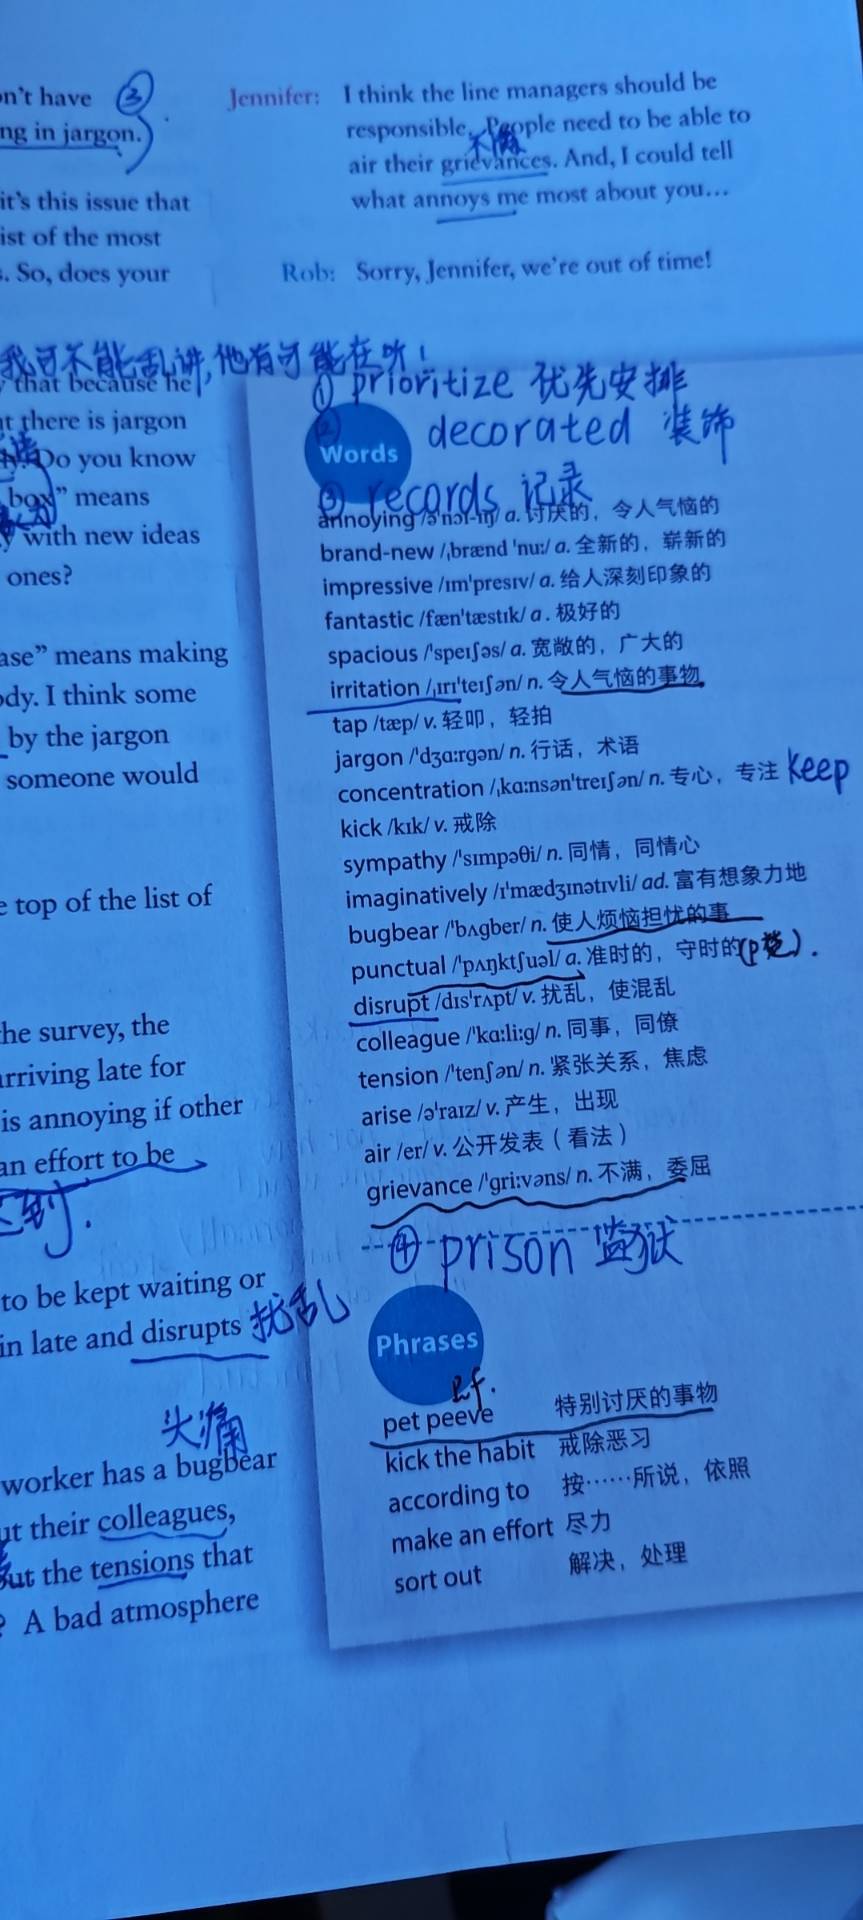 n't have ③
ng in jargon.
it's this issue that
ist of the most
s. So, does your
Jennifer: I think the line managers should be
responsible. People need to be able to
不满
air their grievances. And, I could tell
what annoys me most about you…
Rob: Sorry, Jennifer, we're out of time!
我可不能乱讲,他有可能在听!
y that because he
at there is jargon
Do you know
box" means
y with new ideas
ones?
ase" means making
ody. I think some
by the jargon
someone would
e top of the list of
he survey, the
arriving late for
is annoying if other
an effort to be
迟到.
to be kept waiting or
in late and disrupts 扰乱
头痛
worker has a bugbear
ut their colleagues,
out the tensions that
? A bad atmosphere
① prioritize 优先安排
② decorated 装饰
Words
③ records 记录
annoying /ə'nɔɪ-ɪŋ/ a. 讨厌的，令人气恼的
brand-new /ˌbrænd 'nuː/ a. 全新的，崭新的
impressive /ɪm'presɪv/ a. 给人深刻印象的
fantastic /fæn'tæstɪk/ a. 极好的
spacious /'speɪʃəs/ a. 宽敞的，广大的
irritation /ˌɪrɪ'teɪʃən/ n. 令人气恼的事物
tap /tæp/ v. 轻叩，轻拍
jargon /'dʒɑːrgən/ n. 行话，术语
concentration /ˌkɑːnsən'treɪʃən/ n. 专心，专注 keep
kick /kɪk/ v. 戒除
sympathy /'sɪmpəθi/ n. 同情，同情心
imaginatively /ɪ'mædʒɪnətɪvli/ ad. 富有想象力地
bugbear /'bʌgber/ n. 使人烦恼担忧的事
punctual /'pʌŋktʃuəl/ a. 准时的，守时的
disrupt /dɪs'rʌpt/ v. 扰乱，使混乱
colleague /'kɑːliːg/ n. 同事，同僚
tension /'tenʃən/ n. 紧张关系，焦虑
arise /ə'raɪz/ v. 产生，出现
air /er/ v. 公开发表（看法）
grievance /'griːvəns/ n. 不满，委屈
④ prison 监狱
Phrases
pet peeve 特别讨厌的事物
kick the habit 戒除恶习
according to 按……所说，依照
make an effort 尽力
sort out 解决，处理